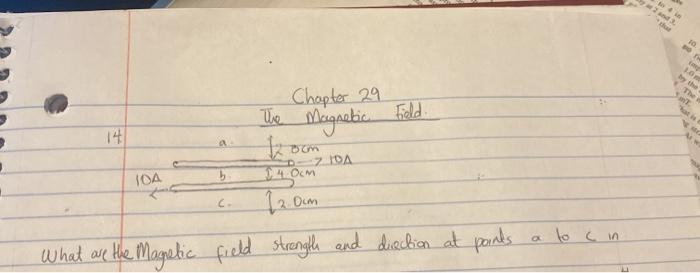 Chapter 29
The Magnetic Field.
14
a. 2.0cm
→ 10A
10A b. 4.0cm
c. 2.0cm
What are the Magnetic field strength and direction at points a to c in